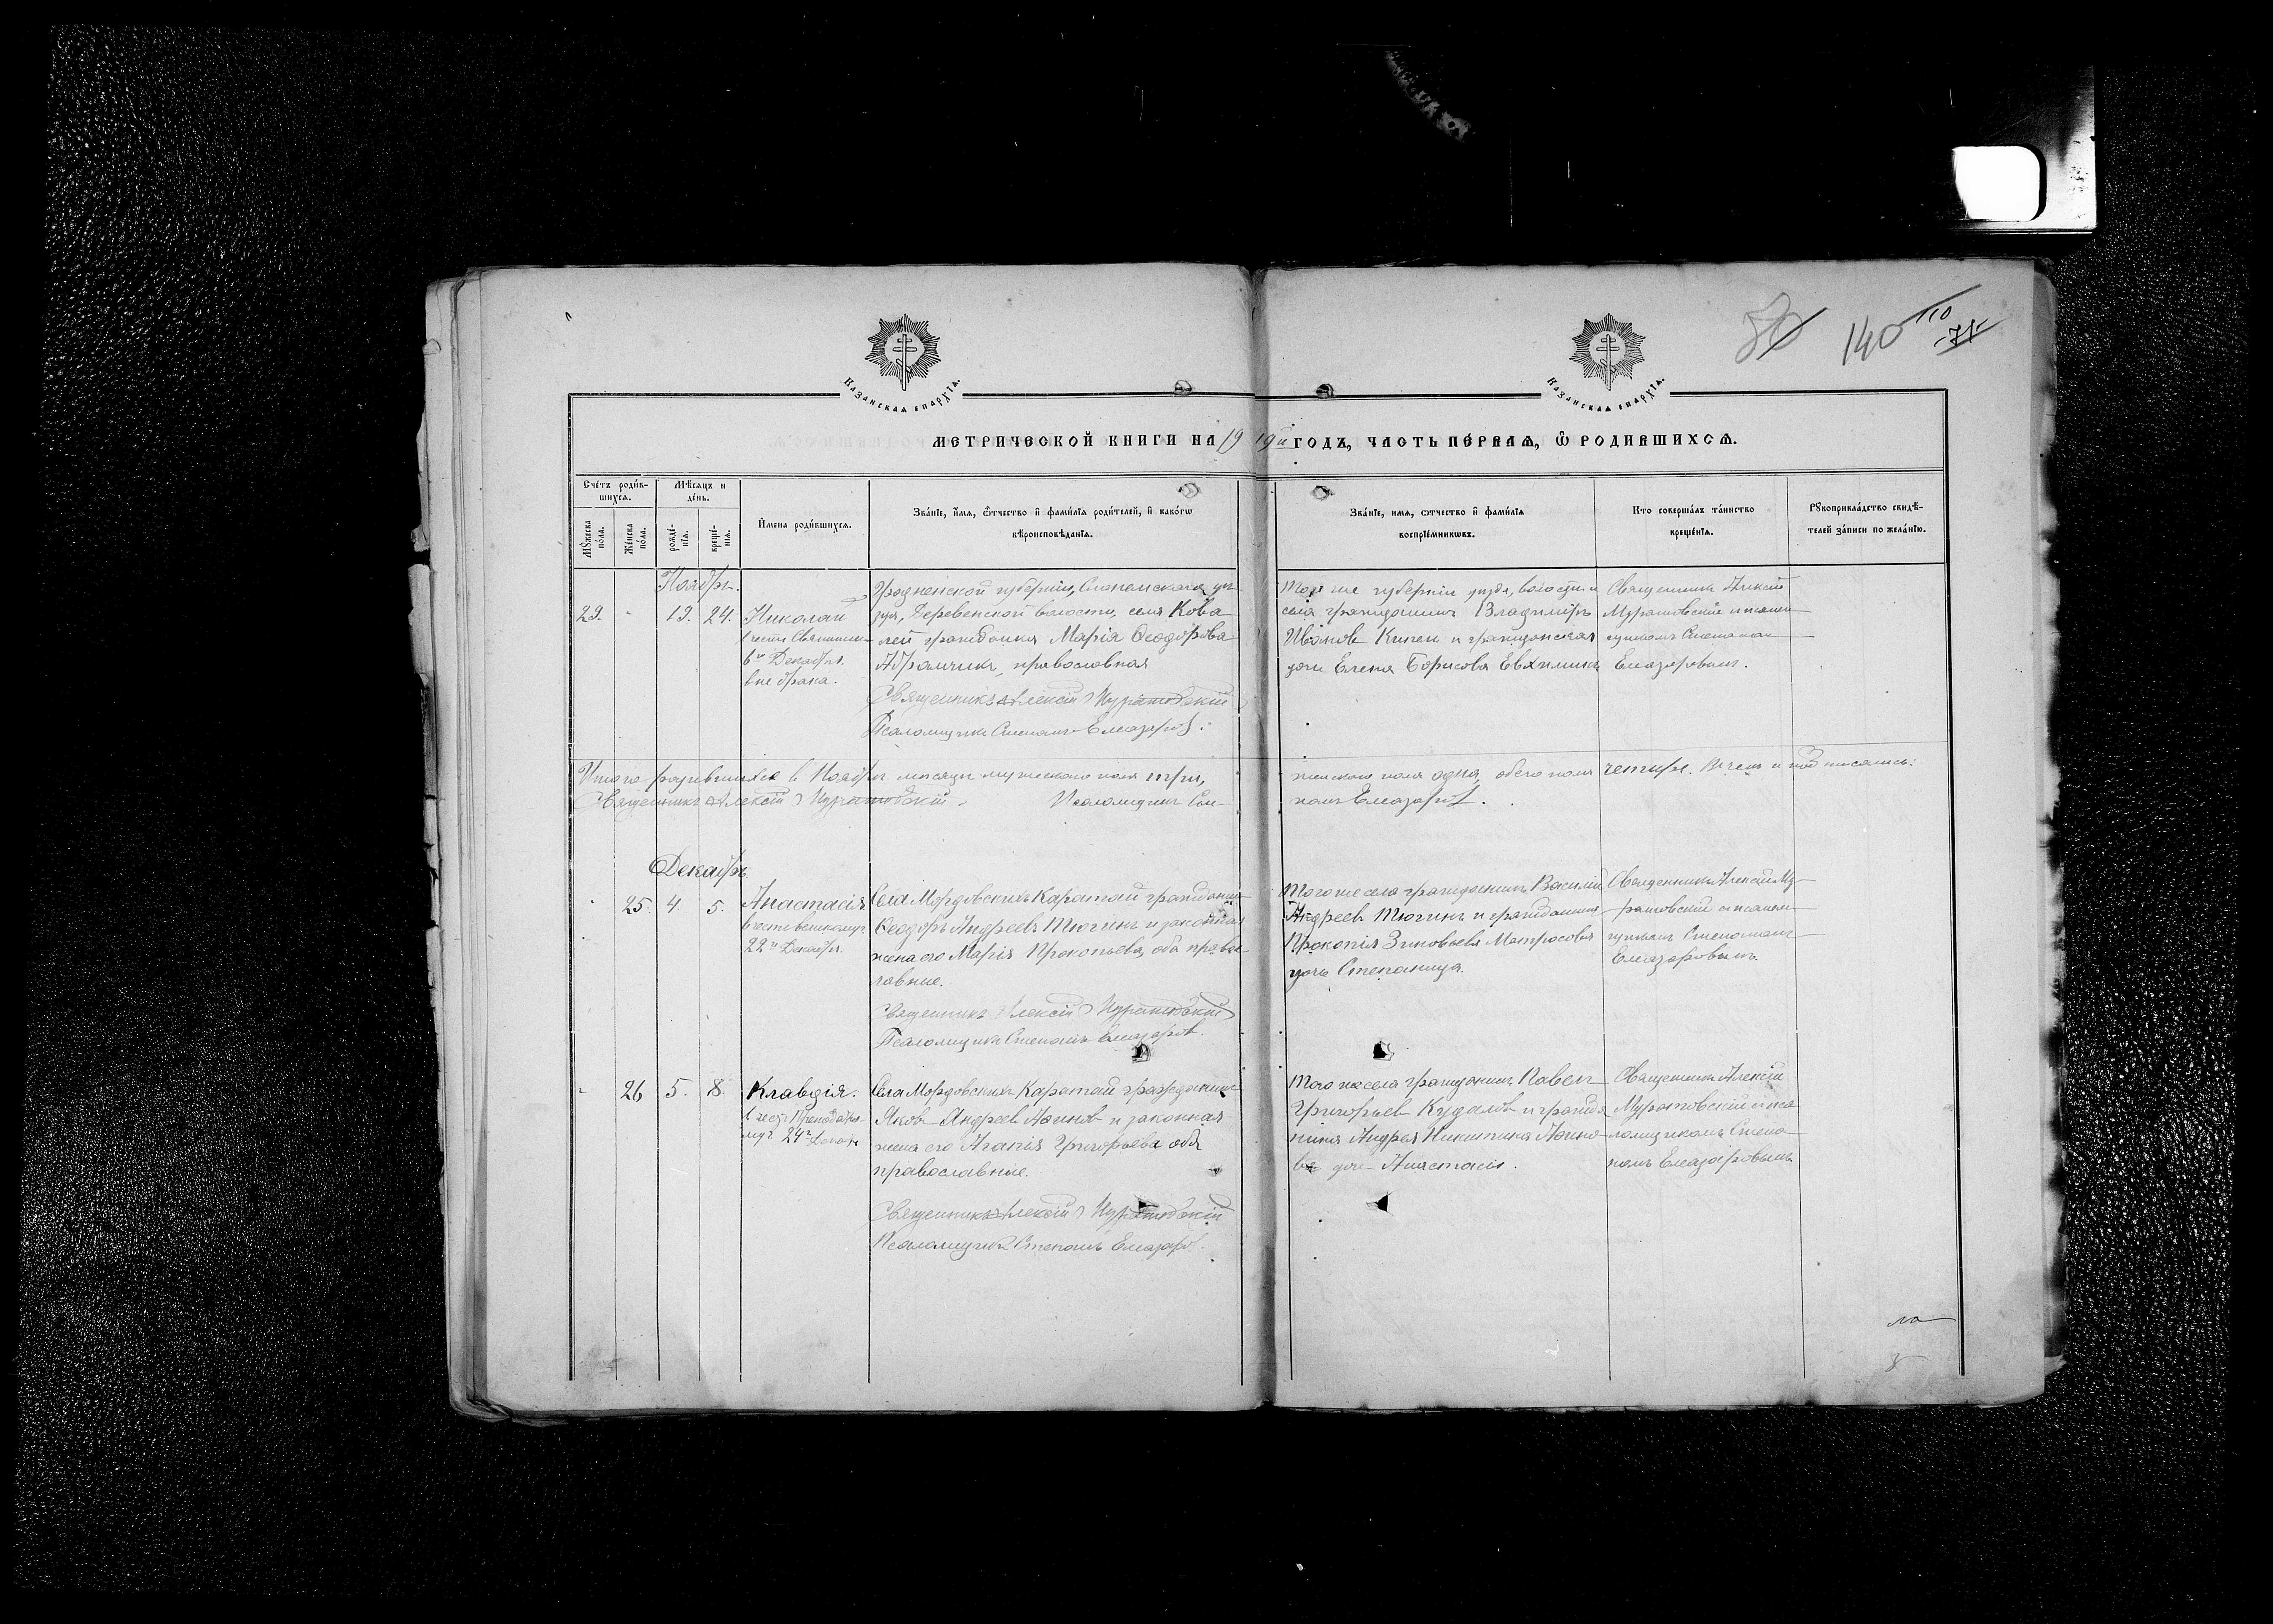 80 140 110 71
Казанская епархїѧ. Казанская епархїѧ.
МЕТРИЧЕСКОЙ КНИГИ НА 1919й ГОДЪ, ЧАСТЬ ПЕРВАЯ, Ѽ РОДИВШИХСѦ.
Счетъ родив-
шихсѧ.
Мꙋжеска пола.
Женска пола.
Мѣсяцъ и
день.
рожде-
нїѧ.
креще-
нїѧ.
Имена родившихсѧ.
Званїе, имѧ, ѿчество и фамилїѧ родителей, и какогѡ
вѣроисповѣданїѧ.
Званїе, имѧ, ѿчество и фамилїѧ
воспрїемникѡвъ.
Кто совершалъ таинство
крещенїѧ.
Рꙋкоприкладство свидѣ-
телей записи по желанїю.
Ноябрь.
29. - 13. 24.
Николай
6го Декабря.
внѣ брака.
Гродненской губерніи, Слонимскаго уѣ-
зда, Деревенской волости, села Кова-
лей гражданка Марія Ѳеодорова
Абрамчикъ, православная
Священникъ Алексій Муратовскій
Псаломщикъ Степанъ Елеазаровъ.
Той же губерніи, уѣзда, волости и
села гражданинъ Владиміръ
Ивановъ и гражданская
дочь Елена Борисова
Священникъ Алексій
Муратовскій и псалом-
щикомъ Степаномъ
Елеазаровымъ.
Итого родившихся въ Ноябрѣ мѣсяцѣ мужескаго пола три, женскаго пола одна, обоего пола четыре. Въ чемъ и подписались:
Священникъ Алексій Муратовскій. Псаломщикъ Сте- панъ Елеазаровъ.
Декабрь
25. 4. 5.
Анастасія
22го Декабря.
Села Мордовскихъ Каратай гражданинъ
Ѳеодоръ Андреевъ Тюгинъ и законная
жена его Марія Прокопьева, оба право-
славные.
Священникъ Алексій Муратовскій
Псаломщикъ Степанъ Елеазаровъ.
Того же села гражданинъ Василій
Андреевъ Тюгинъ и гражданина
Прокопія Зиновьева Матросова
дочь Степанида.
Священникъ Алексій Му-
ратовскій съ псалом-
щикомъ Степаномъ
Елеазаровымъ.
- 26 5. 8.
Клавдія.
24го Декабря
Села Мордовскихъ Каратай гражданинъ
Яковъ Андреевъ и законная
жена его Агапія Григорьева оба
православные.
Священникъ Алексій Муратовскій
Псаломщикъ Степанъ Елеазаровъ.
Того же села гражданинъ Павелъ
Григорьевъ и гражда-
нина Андрея Никитина
дочь Анастасія.
Священникъ Алексій
Муратовскій и пса-
ломщикомъ Степа-
номъ Елеазаровымъ